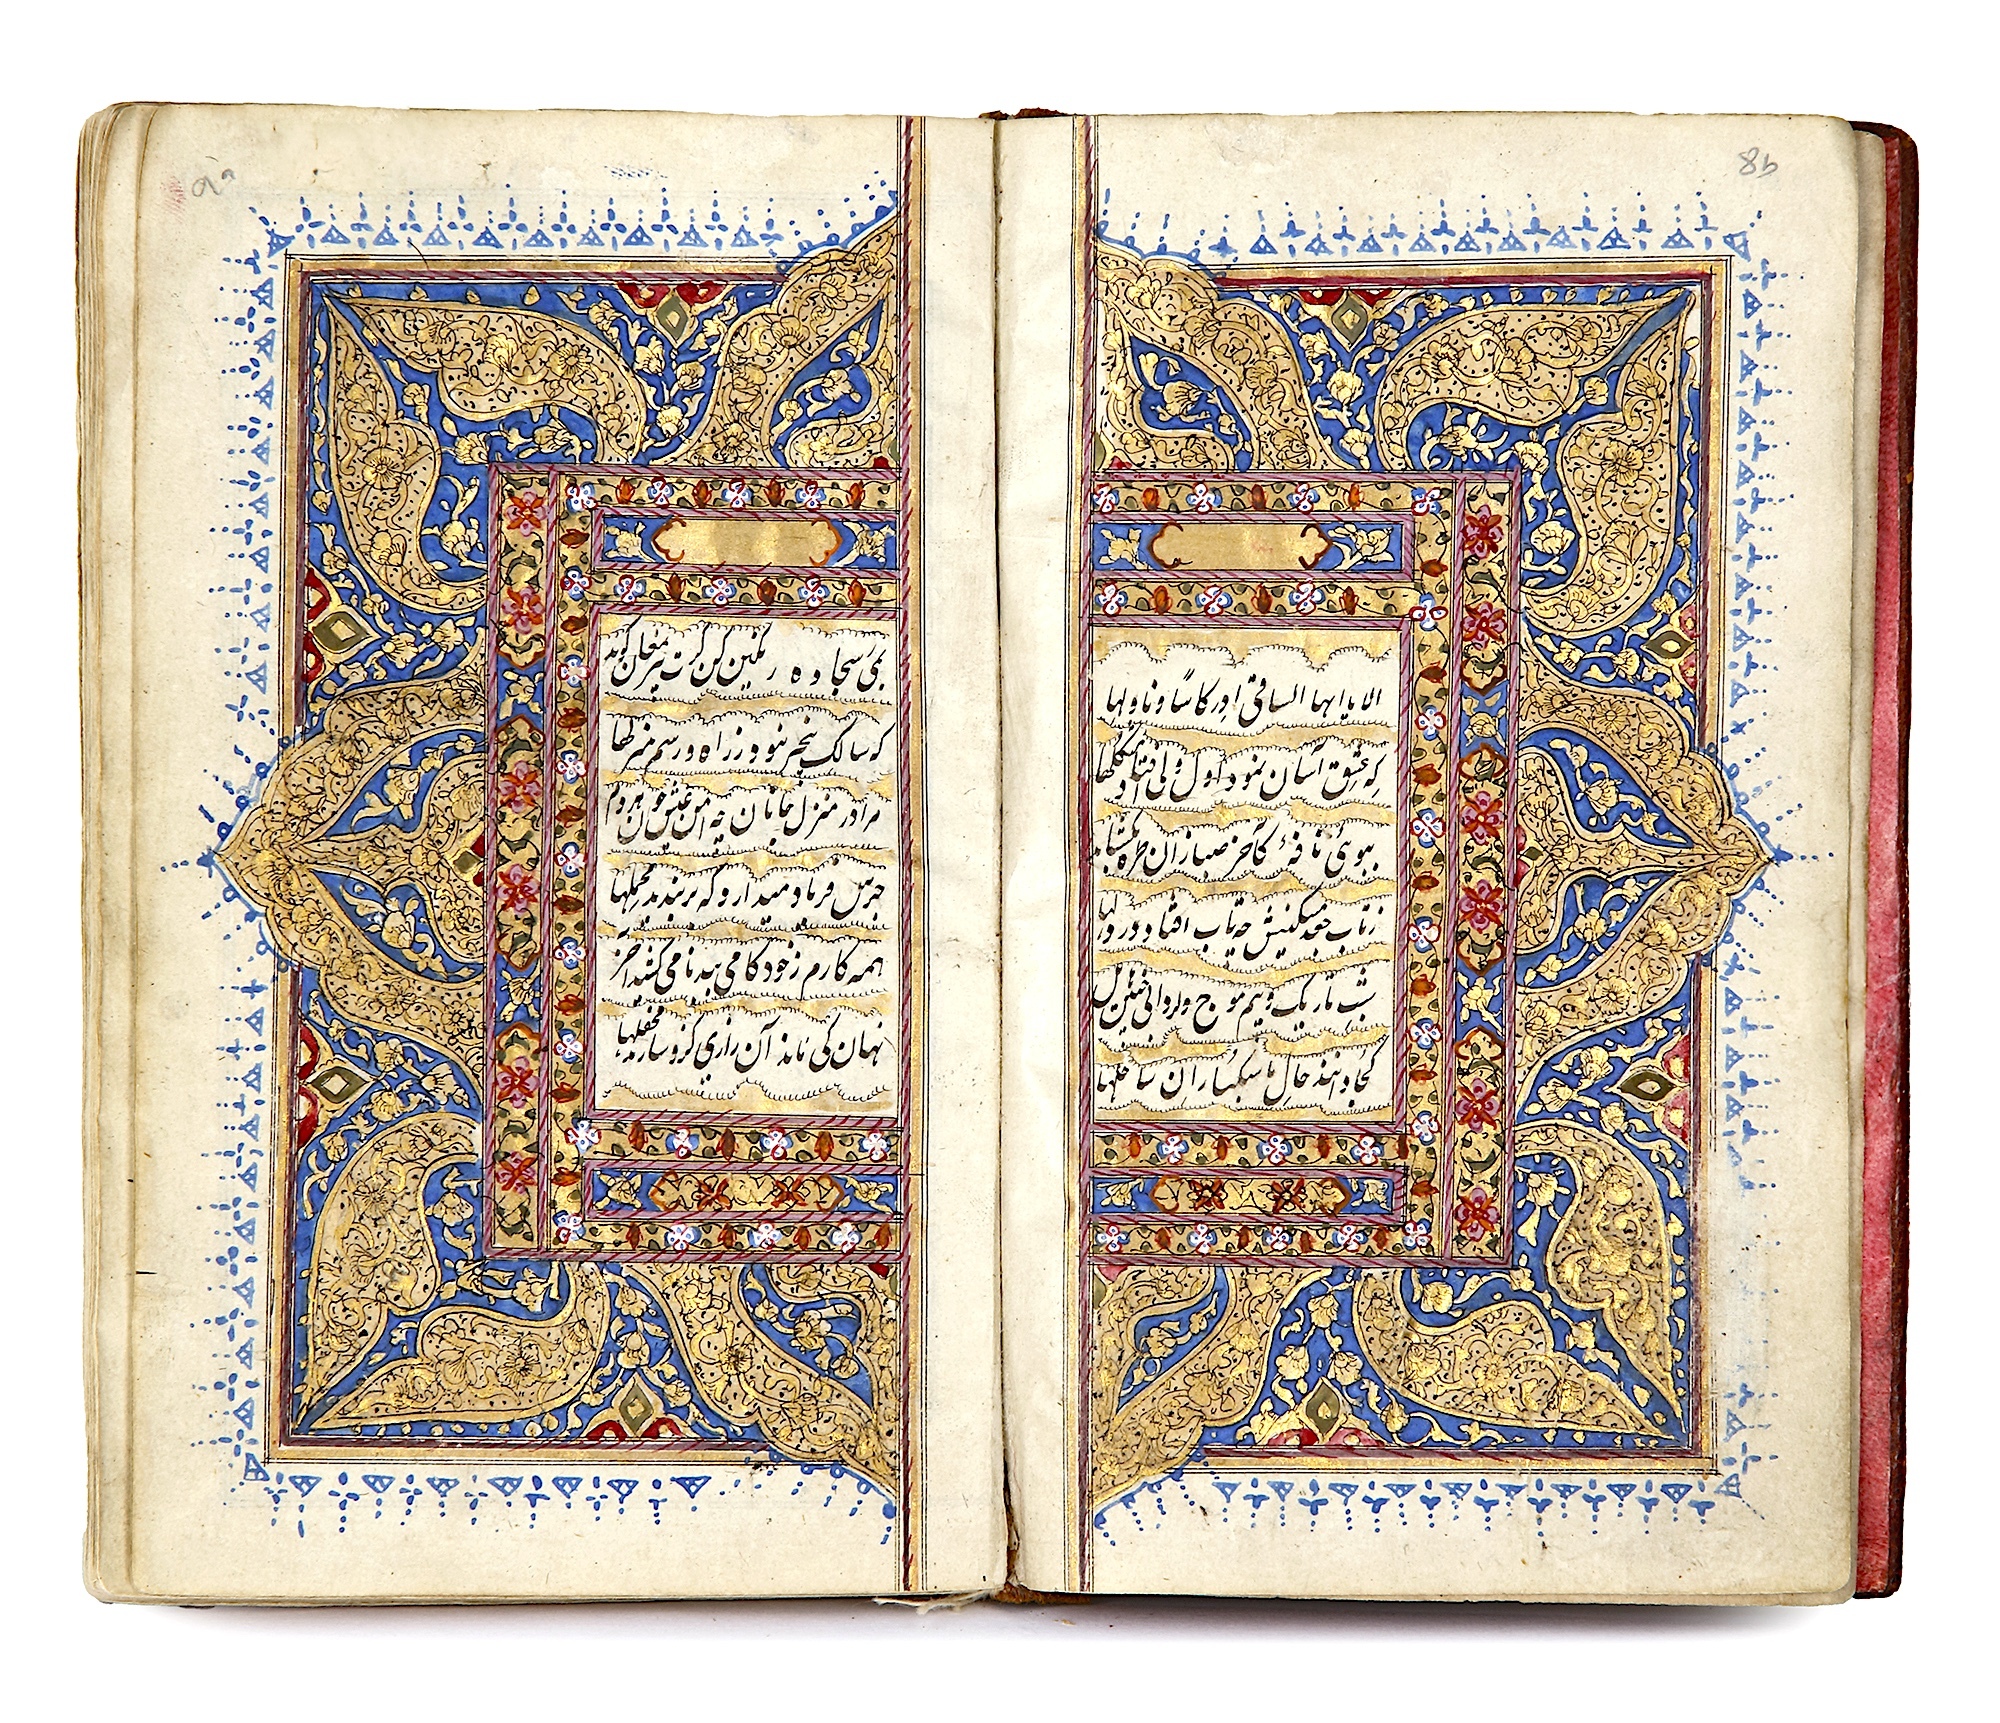 الا یا ایها الساقی ادر کاسا و ناولها
که عشق آسان نمود اول ولی افتاد مشکلها
ببوی نافهٔ کآخر صبا زان طره بگشاید
ز تاب جعد مشکینش چه تاب افتاد در دلها
شب تاریک و بیم موج و گردابی چنین هایل
کجا دانند حال ما سبکباران ساحلها
بمی سجاده رنگین کن گرت پیر مغان گوید
که سالک بیخبر نبود ز راه و رسم منزلها
مرا در منزل جانان چه امن عیش چون هر دم
جرس فریاد میدارد که بربندید محملها
همه کارم ز خود کامی ببدنامی کشید آخر
نهان کی ماند آن رازی کزو سازند محفلها